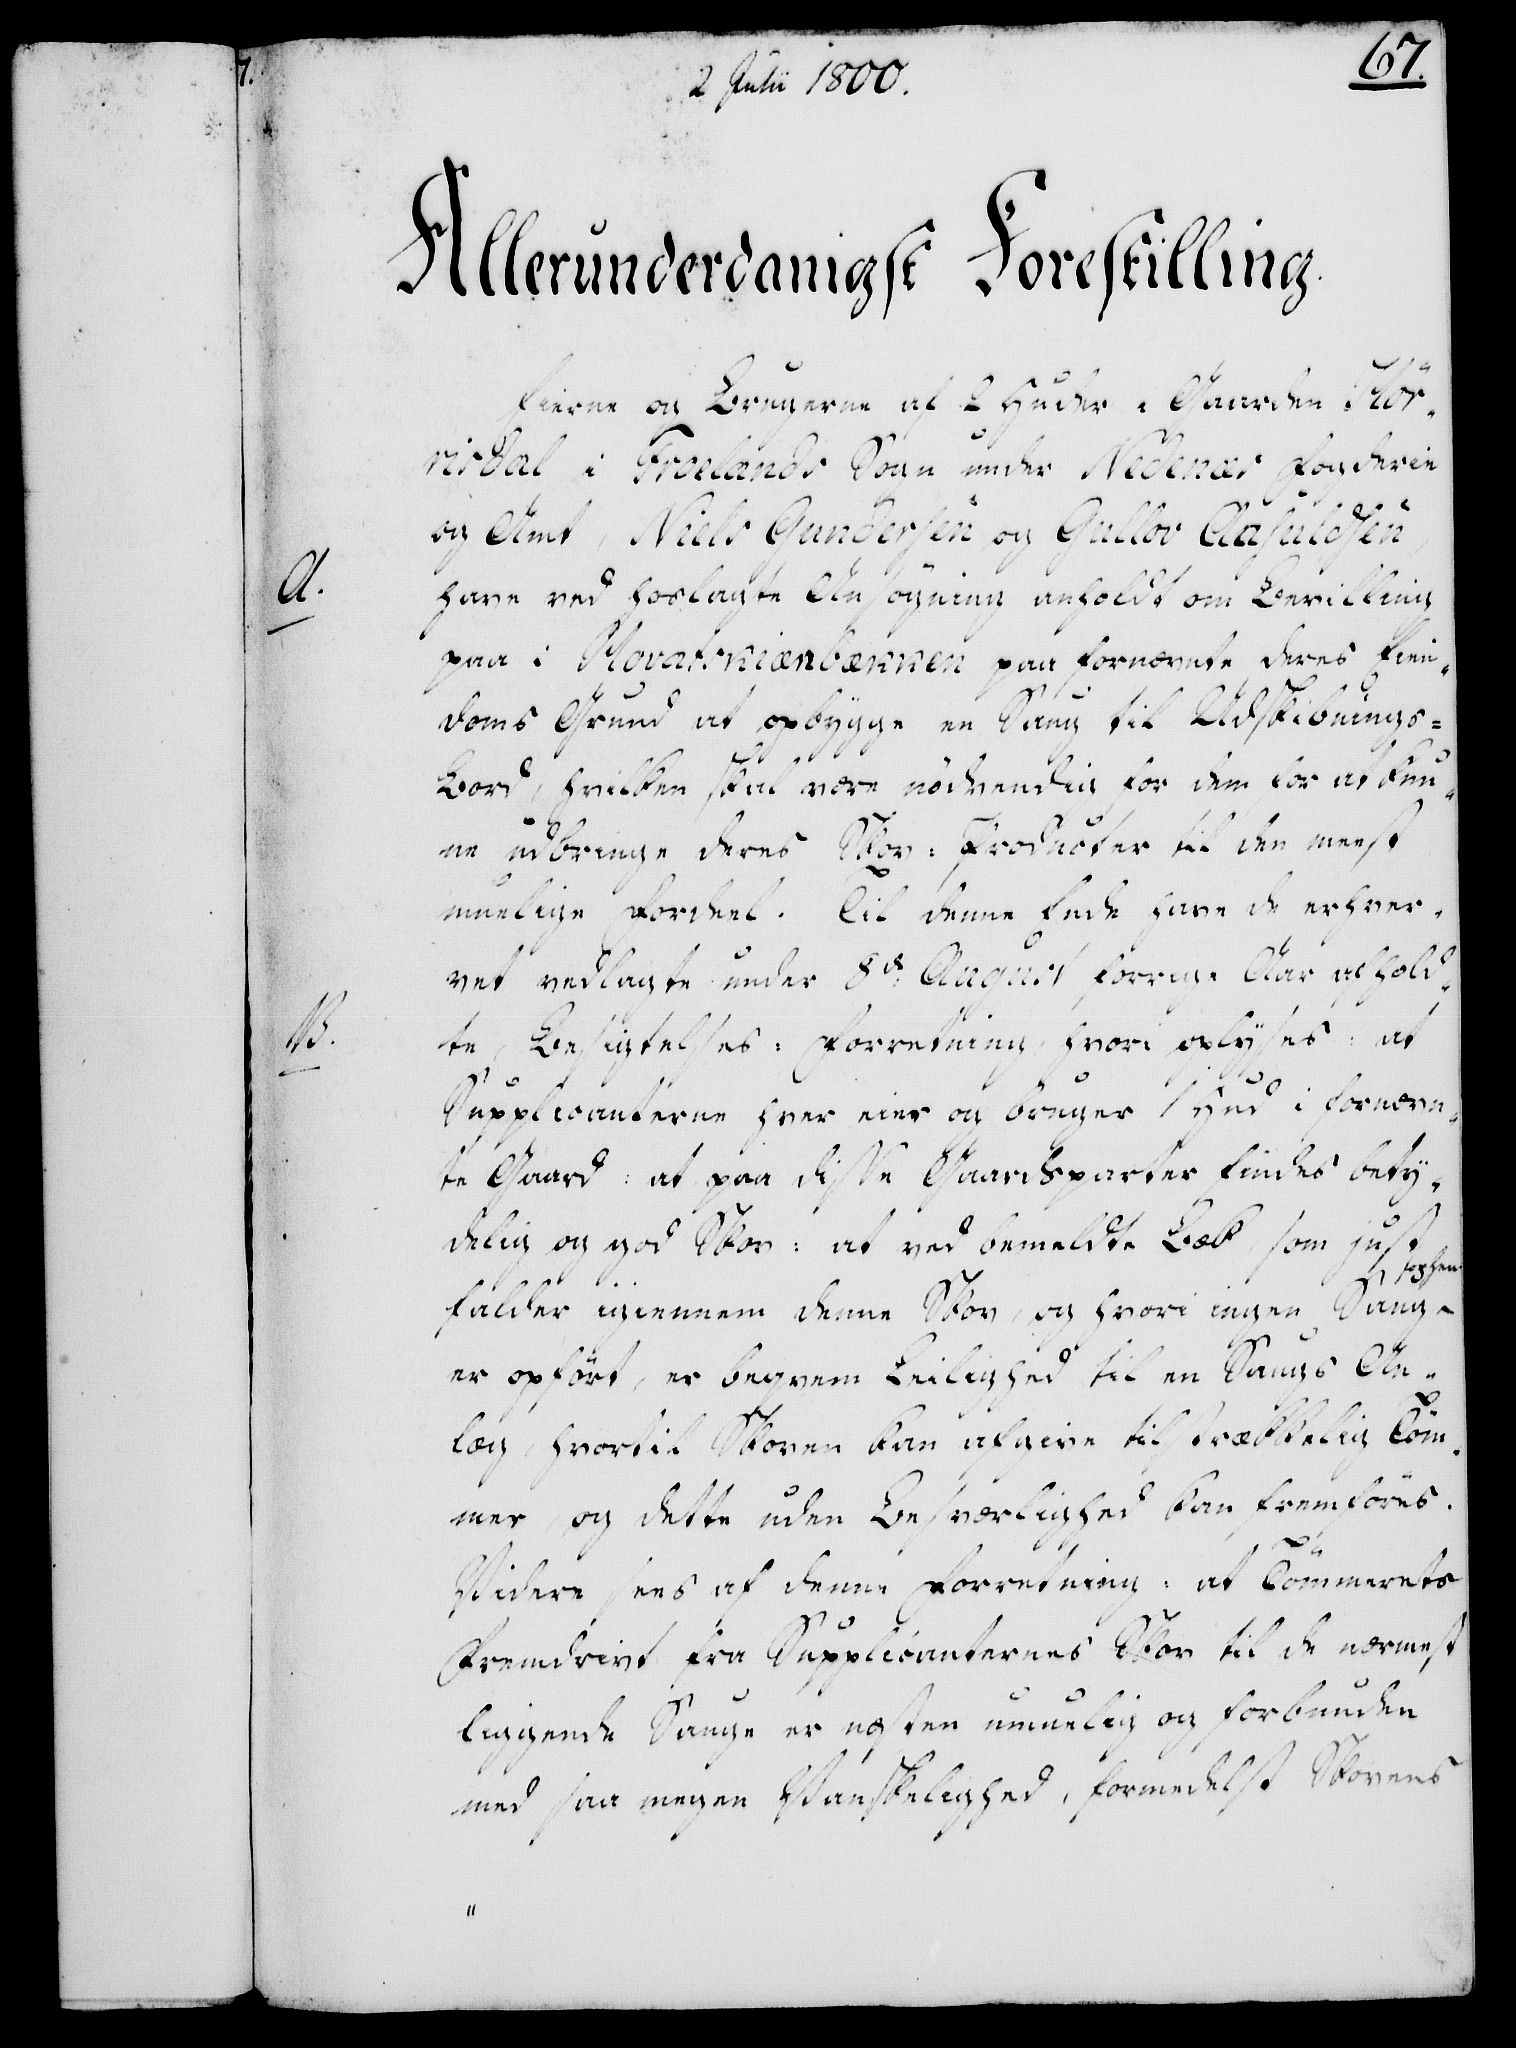 2 Julii 1800.
67.
Allerunderdanigst Forestilling.
Eierne og Brugerne af 2 Huder i Gaarden Mør-
risdal i Froelands Sogn under Nedenæs Fogderie
og Amt, Niels Gundersen og Gullov Aasuldsen,
A.
have ved hoslagte Ansøgning anholdt om Bevilling
paa i Hovatskiænbækken paa fornævnte deres Eien-
doms Grund at opbygge en Saug til Udskibnings-
Bord, hvilken skal være nødvendig for dem for at kun-
ne udbringe deres Skov-Producter til den meest
muelige Fordeel. Til denne Ende have de erhver-
vet vedlagte under 8de August forrige Aar afhold-
B.
te Besigtelses-Forretning, hvori oplyses: at
Supplicanterne hver eier og bruger 1 Hud i fornævn-
te Gaard: at paa disse Gaardsparter findes bety-
delig og god Skov: at ved bemeldte Bæk, som just
falder igiennem denne Skov, og hvori ingen Saug
er opført, er beqvem Leilighed til en Saugs An-
læg, hvortil Skoven kan afgive tilstrækkelig Tøm-
mer, og dette uden Besværlighed kan fremføres.
Videre sees af denne Forretning: at Tømmerets
Fremdrivt fra Supplicanternes Skov til de nærmest
liggende Sauge er næsten umuelig og forbunden
med saa megen Vanskelighed, formedelst Skovens
"